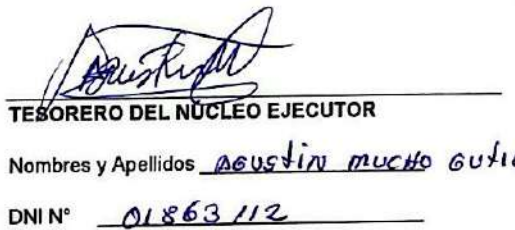 TESORERO DEL NÚCLEO EJECUTOR
Nombres y Apellidos AGUSTIN MUCHO
DNI N° 01863112